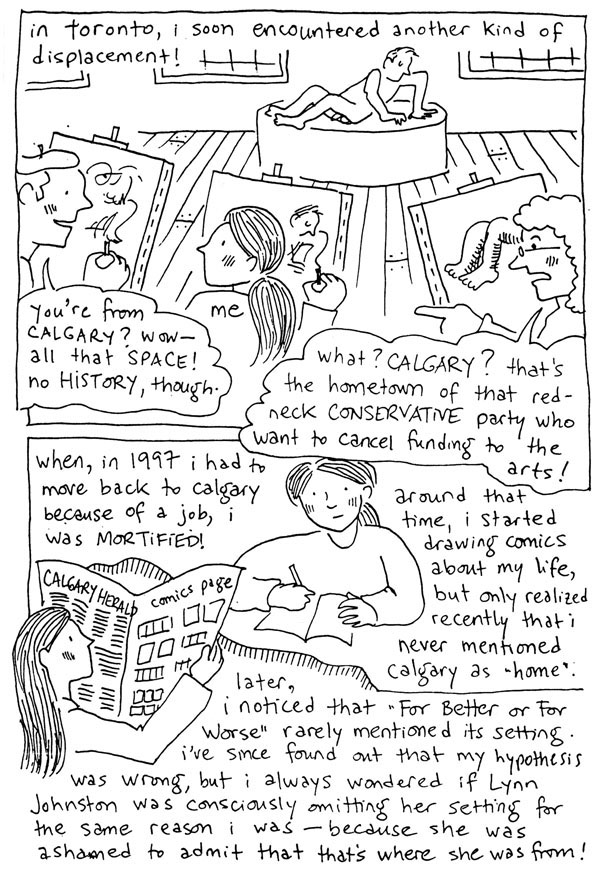 in toronto, i soon encountered another kind of
displacement!
me
you're from
CALGARY? wow—
all that SPACE!
no HISTORY, though.
what? CALGARY? that's
the hometown of that red-
neck CONSERVATIVE party who
want to cancel funding to the
arts!
when, in 1997 i had to
move back to calgary
because of a job, i
was MORTiFiED!
around that
time, i started
drawing comics
about my life,
but only realized
recently that i
never mentioned
Calgary as "home".
CALGARY HERALD
comics page
later,
i noticed that "For Better or For
Worse" rarely mentioned its setting.
i've since found out that my hypothesis
was wrong, but i always wondered if Lynn
Johnston was consciously omitting her setting for
the same reason i was — because she was
ashamed to admit that that's where she was from!